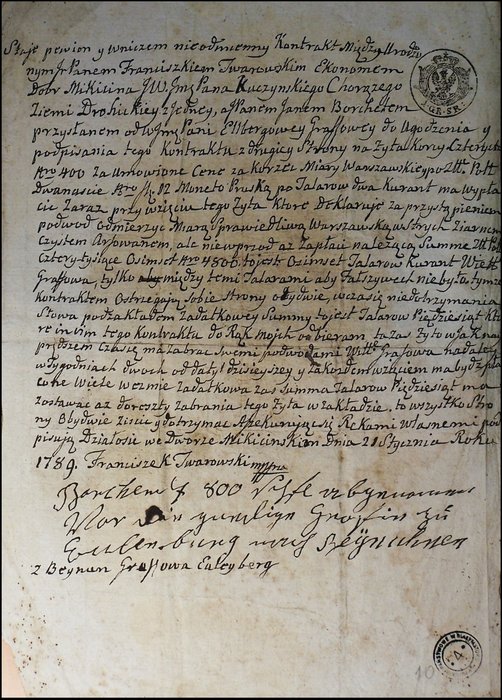 Staje pewien y wniczem nieodmienny Kontrakt Między Urodzo
nym Jr Panem Franciszkiem Twarowskim Ekonomem
Dobr Mikicina JW. Jmę Pana Kuczynskiego Chorążego
Ziemi Drohickiey z Jedney, a Panem Janem Borchertem
przysłanem od Jmsci Pani Elbergowey Graffowey do Ugodzenia y
podpisania tego Kontraktu z drugiey Strony na Żyta Korcy Czterysta
Nro 400 za Umowioną Cenę za Korzec Miary Warszawskiey po Złł. Pols
Dwanascie Nro 12 Monetą Pruską po Talarow dwa Kurant ma wypła
cic Zaraz przy wzięciu tego Żyta Ktore deklaruje za przystąpieniem
podwod odmierzyc Miarą Sprawiedliwą Warszawską w Strych Ziarnem
Czystem Arfowanem, ale niewprzod az Zapłaci należącą Summę Złł.
Cztery tysiące Osimset Nro 4800. tojest Ozimset Talarow Kurant
Graffowa, tylko między temi Talarami aby Fałszywych nie było tymze
Kontraktem Ostrzegają Sobie Strony obydwie, w czasie niedotrzymania
Słowa pod zakładem zadatkowey Summy tojest Talarow Piędziesiąt Kto
re in vim tego Kontraktu do Rąk Mojch odbieram, ta zas Żyto w jak nay
prędszem czasie ma zabrac Swemi podwodami Graffowa nadaley
w Tygodniach dwoch od daty dzisieyszey y za każdem wzięciem ma bydz pła
cone Wiele weźmie zadatkowa zas Summa Talarow Piędziesiąt ma
zostawac az do reszty zabrania tego Żyta w zakładzie. to wszystko Stro
ny Obydwie ziscic y dotrzymac Assekurując się Rękami Własnemi pod
pisują Działosie we Dworze Mikicinskim Dnia 21 Stycznia Roku
1789. Franciszek Twarowski mppria
Borchert 800
Vor
Eulenburg nach Beynuhnen
z Beynun Graffowa Euleyberg
GR. SR.
4
10